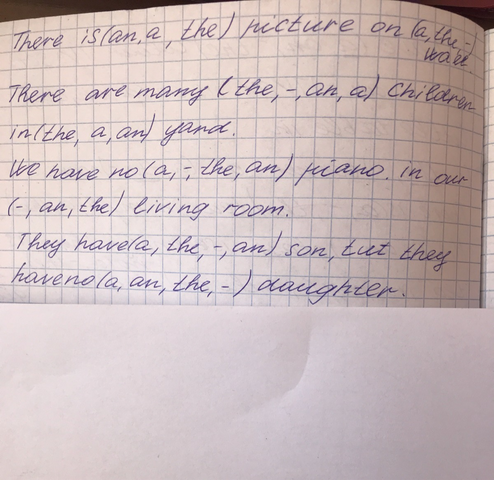 There is (an, a, the) picture on (a, the, -)
wall.
There are many (the, -, an, a) children
in (the, a, an) yard.
We have no (a, -, the, an) piano. in our
(-, an, the) living room.
They have (a, the, -, an) son, but they
have no (a, an, the, -) daughter.